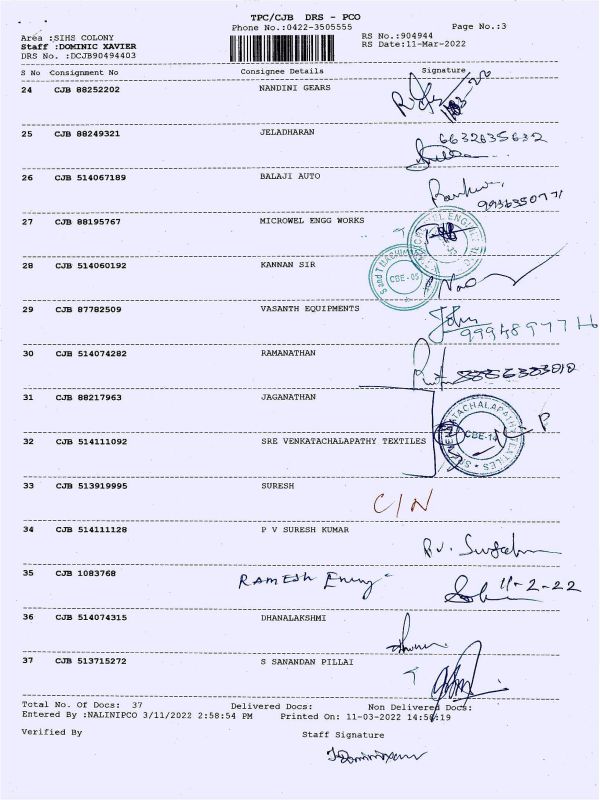 TPC/CJB DRS - PCO
Phone No.:0422-3505555 Page No.:3
Area :SIHS COLONY RS No.:904944
Staff :DOMINIC XAVIER RS Date:11-Mar-2022
DRS No. :DCJB90494403
S No Consignment No Consignee Details Signature
24 CJB 88252202 NANDINI GEARS
25 CJB 88249321 JELADHARAN 6632635632
26 CJB 514067189 BALAJI AUTO
9936350771
27 CJB 88195767 MICROWEL ENGG WORKS
28 CJB 514060192 KANNAN SIR CBE-05
29 CJB 87782509 VASANTH EQUIPMENTS John
30 CJB 514074282 RAMANATHAN
31 CJB 88217963 JAGANATHAN
32 CJB 514111092 SRE VENKATACHALAPATHY TEXTILES CBE-14
33 CJB 513919995 SURESH C/N
34 CJB 514111128 P V SURESH KUMAR
35 CJB 1083768 RAMESH Enngg 11-2-22
36 CJB 514074315 DHANALAKSHMI
37 CJB 513715272 S SANANDAN PILLAI
Total No. Of Docs: 37 Delivered Docs: Non Delivered Docs:
Entered By :NALINIPCO 3/11/2022 2:58:54 PM Printed On: 11-03-2022 14:58:19
Verified By Staff Signature